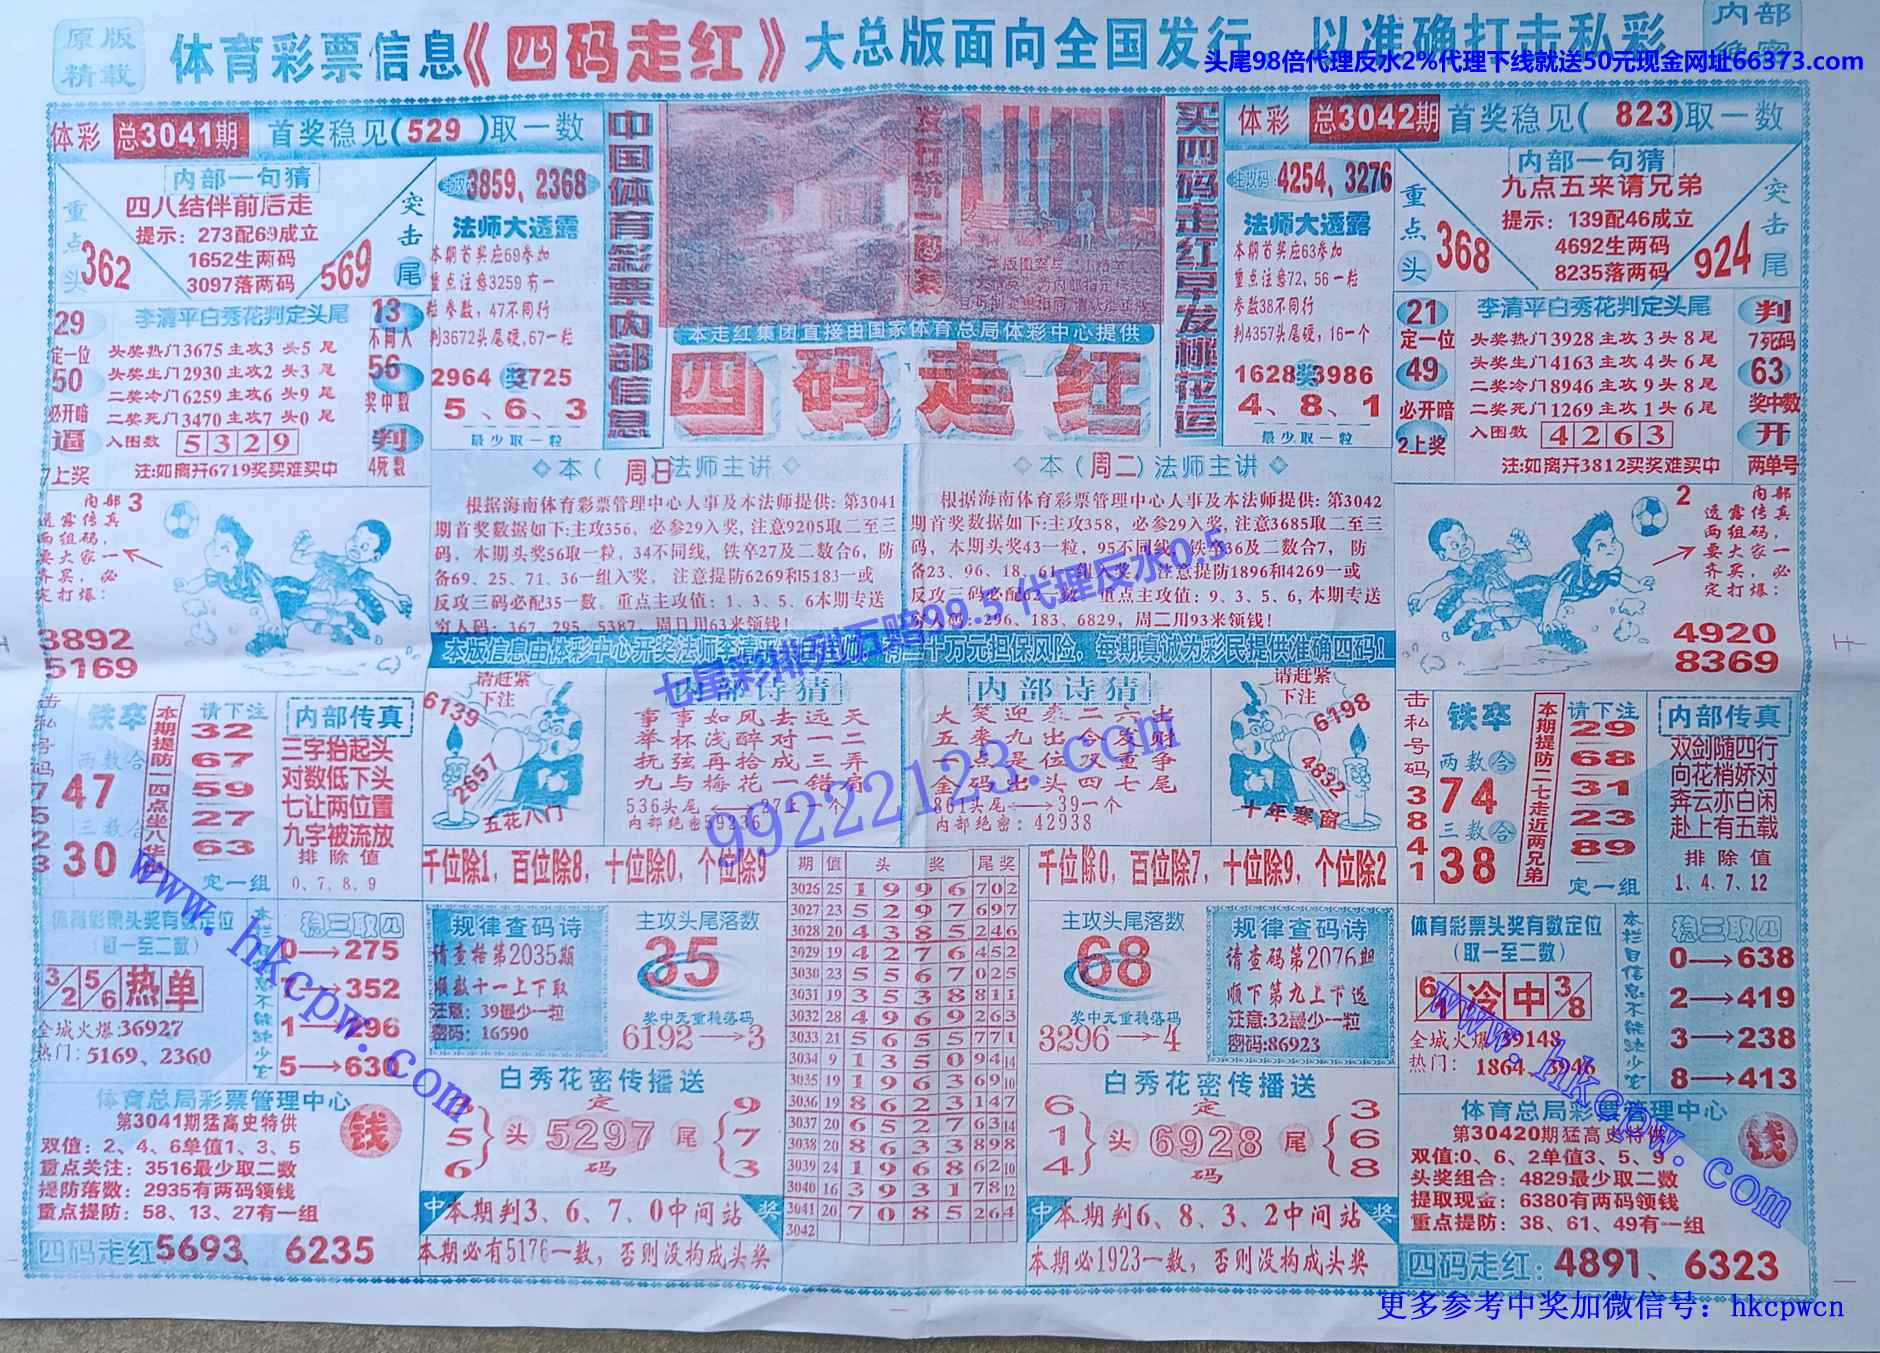 原版
精载
体育彩票信息《四码走红》大总版面向全国发行 以准确打击私彩
内部
头尾98倍代理反水2%代理下线就送50元现金网址66373.com
体彩 总3041期 首奖稳见(529)取一数
内部一句猜
四八结伴前后走
提示：273配69成立
1652生两码
3097落两码
重点头
362
突击尾
569
3859，2368
法师大透露
本期首奖应69参加
重点注意3259有一
粒参数，47不同行
判3672头尾硬，67一粒
2964 奖 3725
5、6、3
最少取一粒
李清平白秀花判定头尾
头奖热门3675主攻3头5尾
头奖生门2930主攻2头3尾
二奖冷门6259主攻6头9尾
二奖死门3470主攻7头0尾
入围数 5329
注:如离开6719奖买难买中
29
定一位
50
必开暗
7上奖
13
不同人
56
奖中数
判
4死数
中国体育彩票内部信息
发行统一图案
本走红集团直接由国家体育总局体彩中心提供
四码走红
买四码走红早发桃花运
体彩 总3042期 首奖稳见(823)取一数
主攻码：4254，3276
法师大透露
本期首奖应63参加
重点注意72、56一粒
参数38不同行
判4357头尾硬，16一个
1628 奖 3986
4、8、1
最少取一粒
内部一句猜
九点五来请兄弟
提示：139配46成立
4692生两码
8235落两码
重点头
368
突击尾
924
李清平白秀花判定头尾
头奖热门3928主攻3头8尾
头奖生门4163主攻4头6尾
二奖冷门8946主攻9头8尾
二奖死门1269主攻1头6尾
入围数 4263
注:如离开3812买奖难买中
21
定一位
49
必开暗
2上奖
判
7死码
63
奖中数
开
两单号
本（周日）法师主讲
根据海南体育彩票管理中心人事及本法师提供: 第3041
期首奖数据如下:主攻356，必参29入奖，注意9205取二至三
码，本期头奖56取一粒，34不同线，铁卒27及二数合6，防
备69、25、71、36一组入奖， 注意提防6269和5183一或
反攻三码必配35一数。重点主攻值：1、3、5、6本期专送
穷人码：367、295、5387、周日用63来领钱！
本（周二）法师主讲
根据海南体育彩票管理中心人事及本法师提供: 第3042
期首奖数据如下:主攻358，必参29入奖，注意3685取二至三
码，本期头奖43一粒，95不同线，铁卒36及二数合7， 防
备23、96、18、61一组入奖， 注意提防1896和4269一或
反攻三码必配62一数 重点主攻值：9、3、5、6，本期专送
296、183、6829，周二用93来领钱！
七星彩排列五赔99.5 代理反水0.5
99222123.com
内部3
透露传真
两组码，
要大家一
齐买，必
定打爆：
3892
5169
2
内部
透露传真
两组码，
要大家一
齐买，必
定打爆：
4920
8369
击私号码
7523
铁卒
两数合
47
三数合
30
本期提防一四点坐八华
请下注
32
67
59
27
63
定一组
内部传真
三字抬起头
对数低下头
七让两位置
九字被流放
排除值
0、7、8、9
请赶紧
下注
6139
2657
五花八门
内部诗猜
事事如风去远天
举杯浅醉对一二
抚弦再拾成三弄
九与梅花一错肩
536头尾
内部绝密59236
内部诗猜
大笑迎来二六出
五来九出今发财
一点是位双重争
金码出头四七尾
861头尾 39一个
内部绝密：42938
请赶紧
下注
6198
4832
十年寒窗
击私号码
3841
铁卒
两数合
74
三数合
38
本期提防二七走近两兄弟
请下注
29
68
31
23
89
定一组
内部传真
双剑随四行
向花梢娇对
奔云亦白闲
赴上有五载
排除值
1、4、7、12
千位除1，百位除8，十位除0，个位除9
期 值 头奖 尾奖
3026 25 1996 702
3027 23 5297 697
3028 20 4385 246
3029 19 4276 452
3030 23 5567 025
3031 19 3538 811
3032 28 4969 263
3033 21 5655 771
3034 9 1350 94 14
3035 19 1963 69 10
3036 19 8623 147
3037 20 6527 63 14
3038 20 8633 898
3039 24 1968 62 10
3040 16 3931 78 12
3041 20 7085 264
3042
千位除0，百位除7，十位除9，个位除2
体育彩票头奖有数定位
（取一至二数）
3/2 5/6 热 单
全城火爆36927
热门：5169、2360
稳三取四
0→275
→352
1→296
5→630
规律查码诗
请查格第2035期
顺数十一上下取
注意：39最少一粒
密码：16590
主攻头尾落数
35
奖中无重稳落码
6192→3
主攻头尾落数
68
奖中无重稳落码
3296→4
规律查码诗
请查码第2076期
顺下第九上下送
注意:32最少一粒
密码:86923
体育彩票头奖有数定位
（取一至二数）
冷 中 3/8
全城火爆39148
热门：1864、3946
本栏自信息不能缺少它
稳三取四
0→638
2→419
3→238
8→413
www.hkcpw.com
www.hkcpw.com
体育总局彩票管理中心
第3041期猛高史特供
双值：2、4、6单值1、3、5
重点关注：3516最少取二数
提防落数：2935有两码领钱
重点提防：58、13、27有一组
钱
四码走红5693、6235
白秀花密传播送
5
6
头 定 5297 码 尾
9
7
3
中 本期判3、6、7、0中间站 奖
本期必有5176一数，否则没构成头奖
白秀花密传播送
6
1
4
头 定 6928 码 尾
3
6
8
中 本期判6、8、3、2中间站 奖
本期必1923一数，否则没构成头奖
体育总局彩票管理中心
第30420期猛高史特供
双值:0、6、2单值3、5、9
头奖组合：4829最少取二数
提取现金：6380有两码领钱
重点提防：38、61、49有一组
钱
四码走红：4891、6323
更多参考中奖加微信号：hkcpwcn